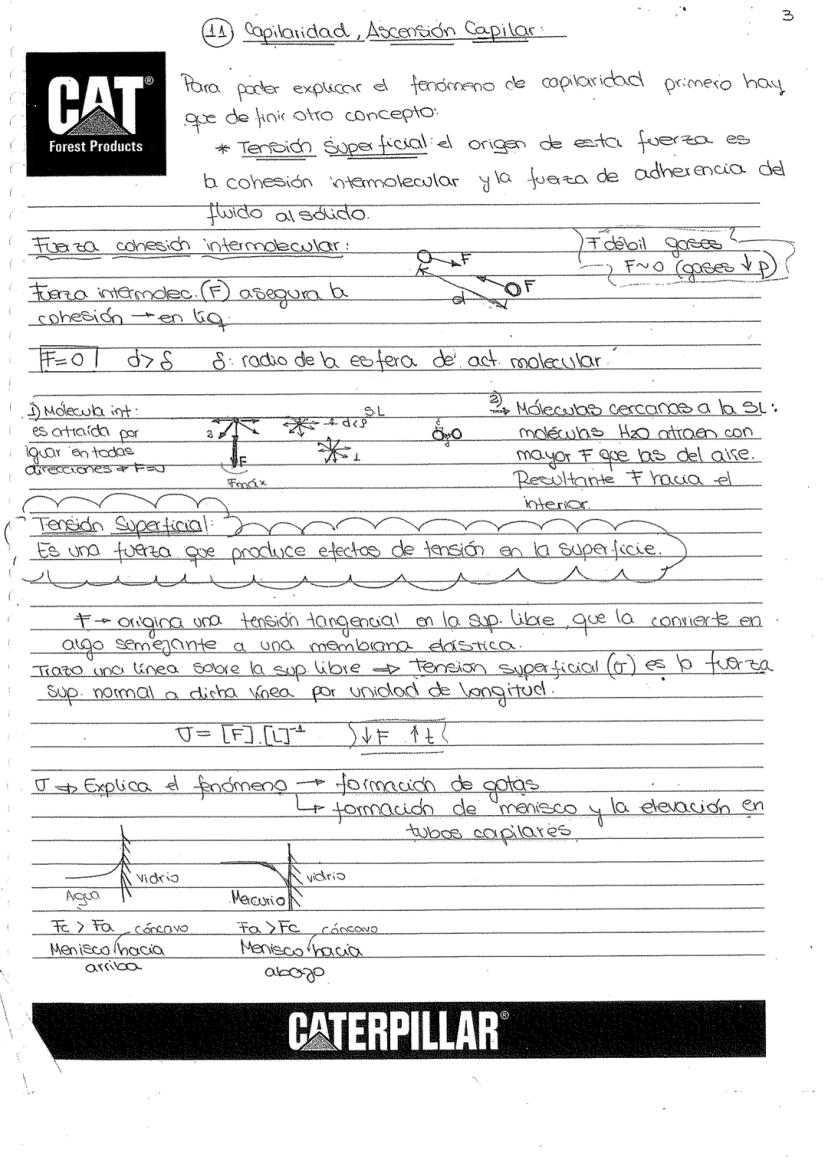 3
11 Capilaridad, Ascensión Capilar:
CAT®
Forest Products
Para poder explicar el fenómeno de capilaridad primero hay
que definir otro concepto:
* Tensión Superficial: el origen de esta fuerza es
la cohesión intermolecular y la fuerza de adherencia del
fluido al sólido.
Fuerza cohesión intermolecular:
F débil gases
F~0 (gases ↓ p)
F
F
d
Fuerza intermolec. (F) asegura la
cohesión → en líq.
F=0 d>δ δ: radio de la esfera de act. molecular.
1) Molécula int:
es atraída por
igual en todas
direcciones → F=0
2
F
Fmáx
SL
1
2) → Moléculas cercanas a la SL:
moléculas H2O atraen con
mayor F que las del aire.
Resultante F hacia el
interior.
Tensión Superficial:
Es una fuerza que produce efectos de tensión en la superficie.
F → origina una tensión tangencial en la sup. libre, que la convierte en
algo semejante a una membrana elástica.
Trazo una línea sobre la sup libre ⇒ tensión superficial (σ) es la fuerza
sup. normal a dicha línea por unidad de longitud.
σ = [F].[L]⁻¹ ↓F ↑t
σ ⇒ Explica el fenómeno → formación de gotas
↳ formación de menisco y la elevación en
tubos capilares
Agua vidrio Mercurio vidrio
Fc > Fa cóncavo Fa > Fc cóncavo
Menisco hacia Menisco hacia
arriba abajo
CATERPILLAR®